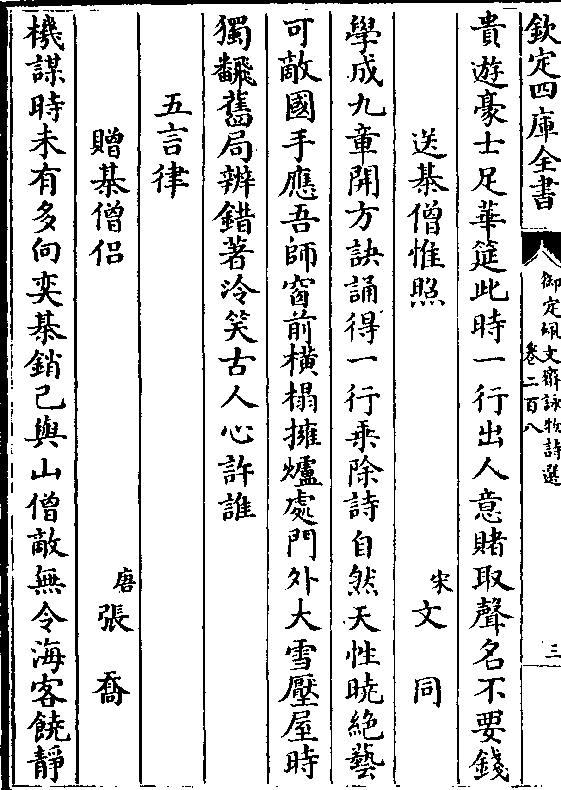 欽定四庫全書
御定佩文齋詠物詩選
卷二百八
三
貴遊豪士足華筵此時一行出人意賭取聲名不要錢
送棊僧惟照
宋
文同
學成九章開方訣誦得一行乘除詩自然天性曉絶藝
可敵國手應吾師窗前橫榻擁爐處門外大雪壓屋時
獨翻舊局辨錯著冷笑古人心許誰
五言律
贈棊僧侣
唐
張喬
機謀時未有多向奕棊銷已與山僧敵無令海客饒靜